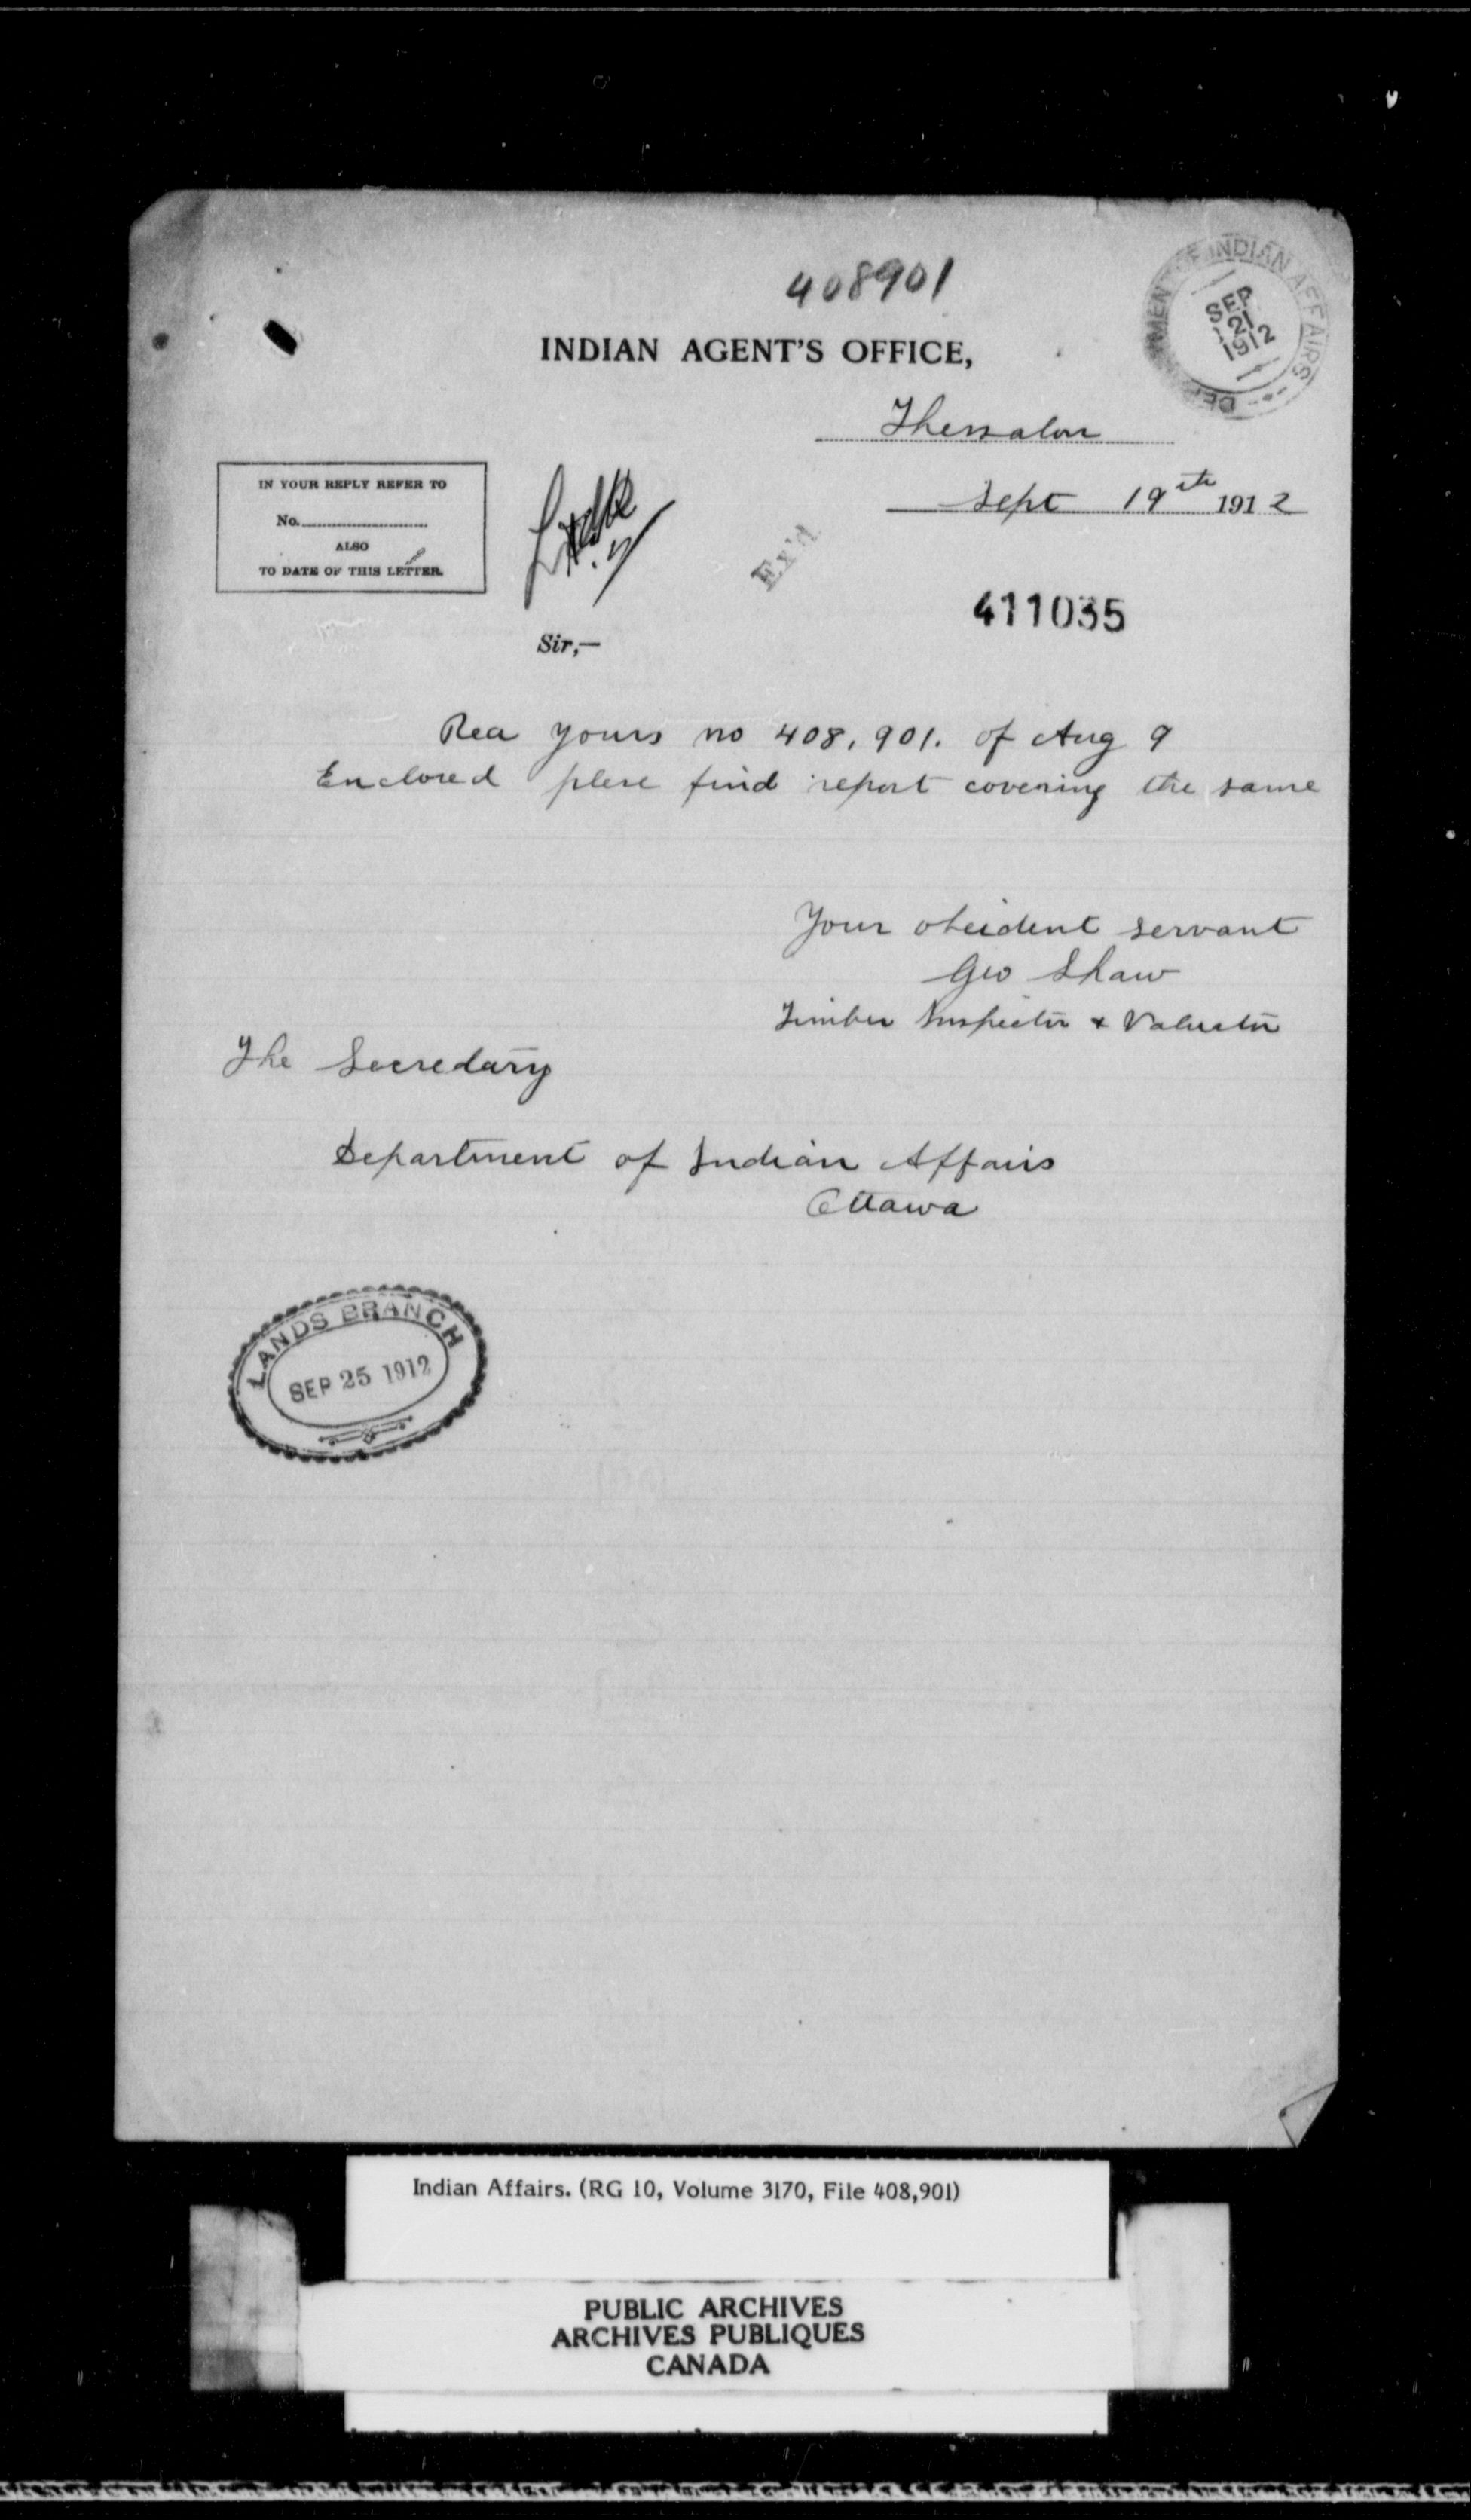 408901
DEPARTMENT OF INDIAN AFFAIRS
SEP
21
1912
INDIAN AGENT'S OFFICE,
Thessalon
Sept 19th 1912
IN YOUR REPLY REFER TO
No.
ALSO
TO DATE OF THIS LETTER.
Ex'd
411035
Sir,—
Rea yours no 408,901. of Aug 9
Enclosed plese find report covering the same
Your obeident servant
Geo Shaw
Timber Inspector & Valuator
The Secredary
Department of Indian Affairs
Ottawa
LANDS BRANCH
SEP 25 1912
Indian Affairs. (RG 10, Volume 3170, File 408,901)
PUBLIC ARCHIVES
ARCHIVES PUBLIQUES
CANADA